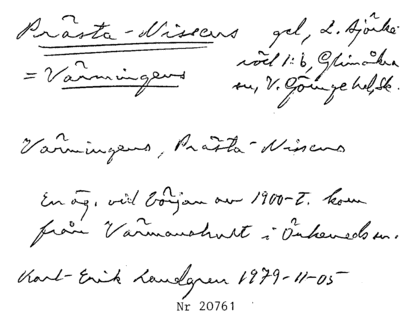 Prästa-Nissens gel, L. Björke
= Värmingens röd 1:6, Glimåkra
sn, V. Göinge hd, Sk.
Värmingens, Prästa-Nissens
En äg. vid början av 1900-t. kom
från Värmanshult i Örkeneds sn.
Karl-Erik Landgren 1979-11-05
Nr 20761